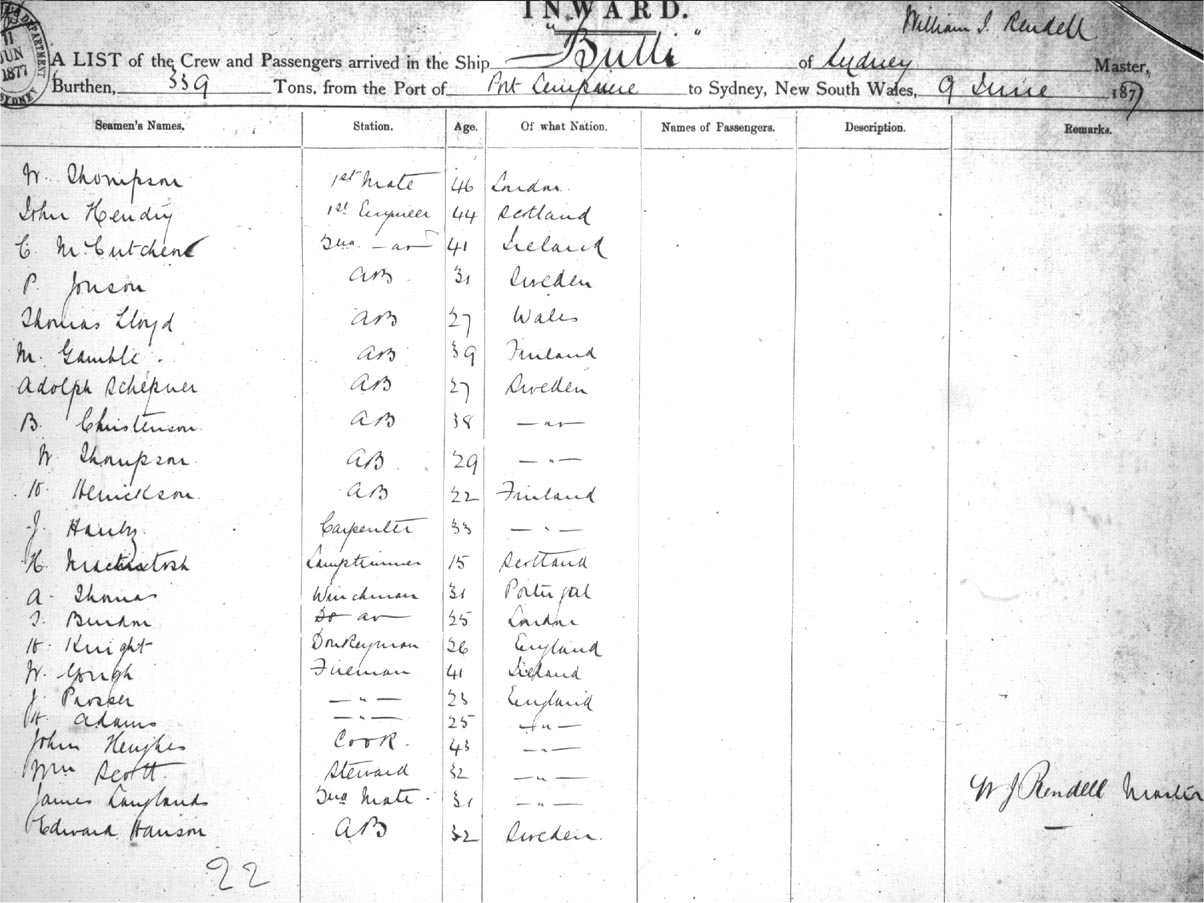 INWARD.
William J. Rendell
11 JUN 1877 SYDNEY DEPARTMENT
A LIST of the Crew and Passengers arrived in the Ship "Bulli" of Sydney Master,
Burthen, 339 Tons, from the Port of Port to Sydney, New South Wales, 9 June 1877
Seamen's Names. Station. Age. Of what Nation. Names of Passengers. Description. Remarks.
W. Thompson 1st Mate 46 London
John Hendry 1st Engineer 44 Scotland
C. McCutchen 2nd — do — 41 Ireland
P. Jonson AB 31 Sweden
Thomas Lloyd AB 27 Wales
M. Gamble AB 39 Finland
Adolph Schepner AB 27 Sweden
B. Christenson AB 38 — do —
W. Thompson AB 29 — " —
H. Henickson AB 22 Finland
J. Carpenter 33 — " —
H. Mackintosh Lamptrimmer 15 Scotland
A. Thomas Winchman 31 Portugal
Do do 25 London
H. Knight Donkeyman 26 England
W. Gough Fireman 41 Ireland
J. Prosser — " — 23 England
H. Adams — " — 25 — " —
John Hughes Cook 43 — " —
Wm Scott Steward 32 — " —
James Langlands 2nd Mate 31 — " —
Edward Hanson AB 32 Sweden
W J Rendell Master
22